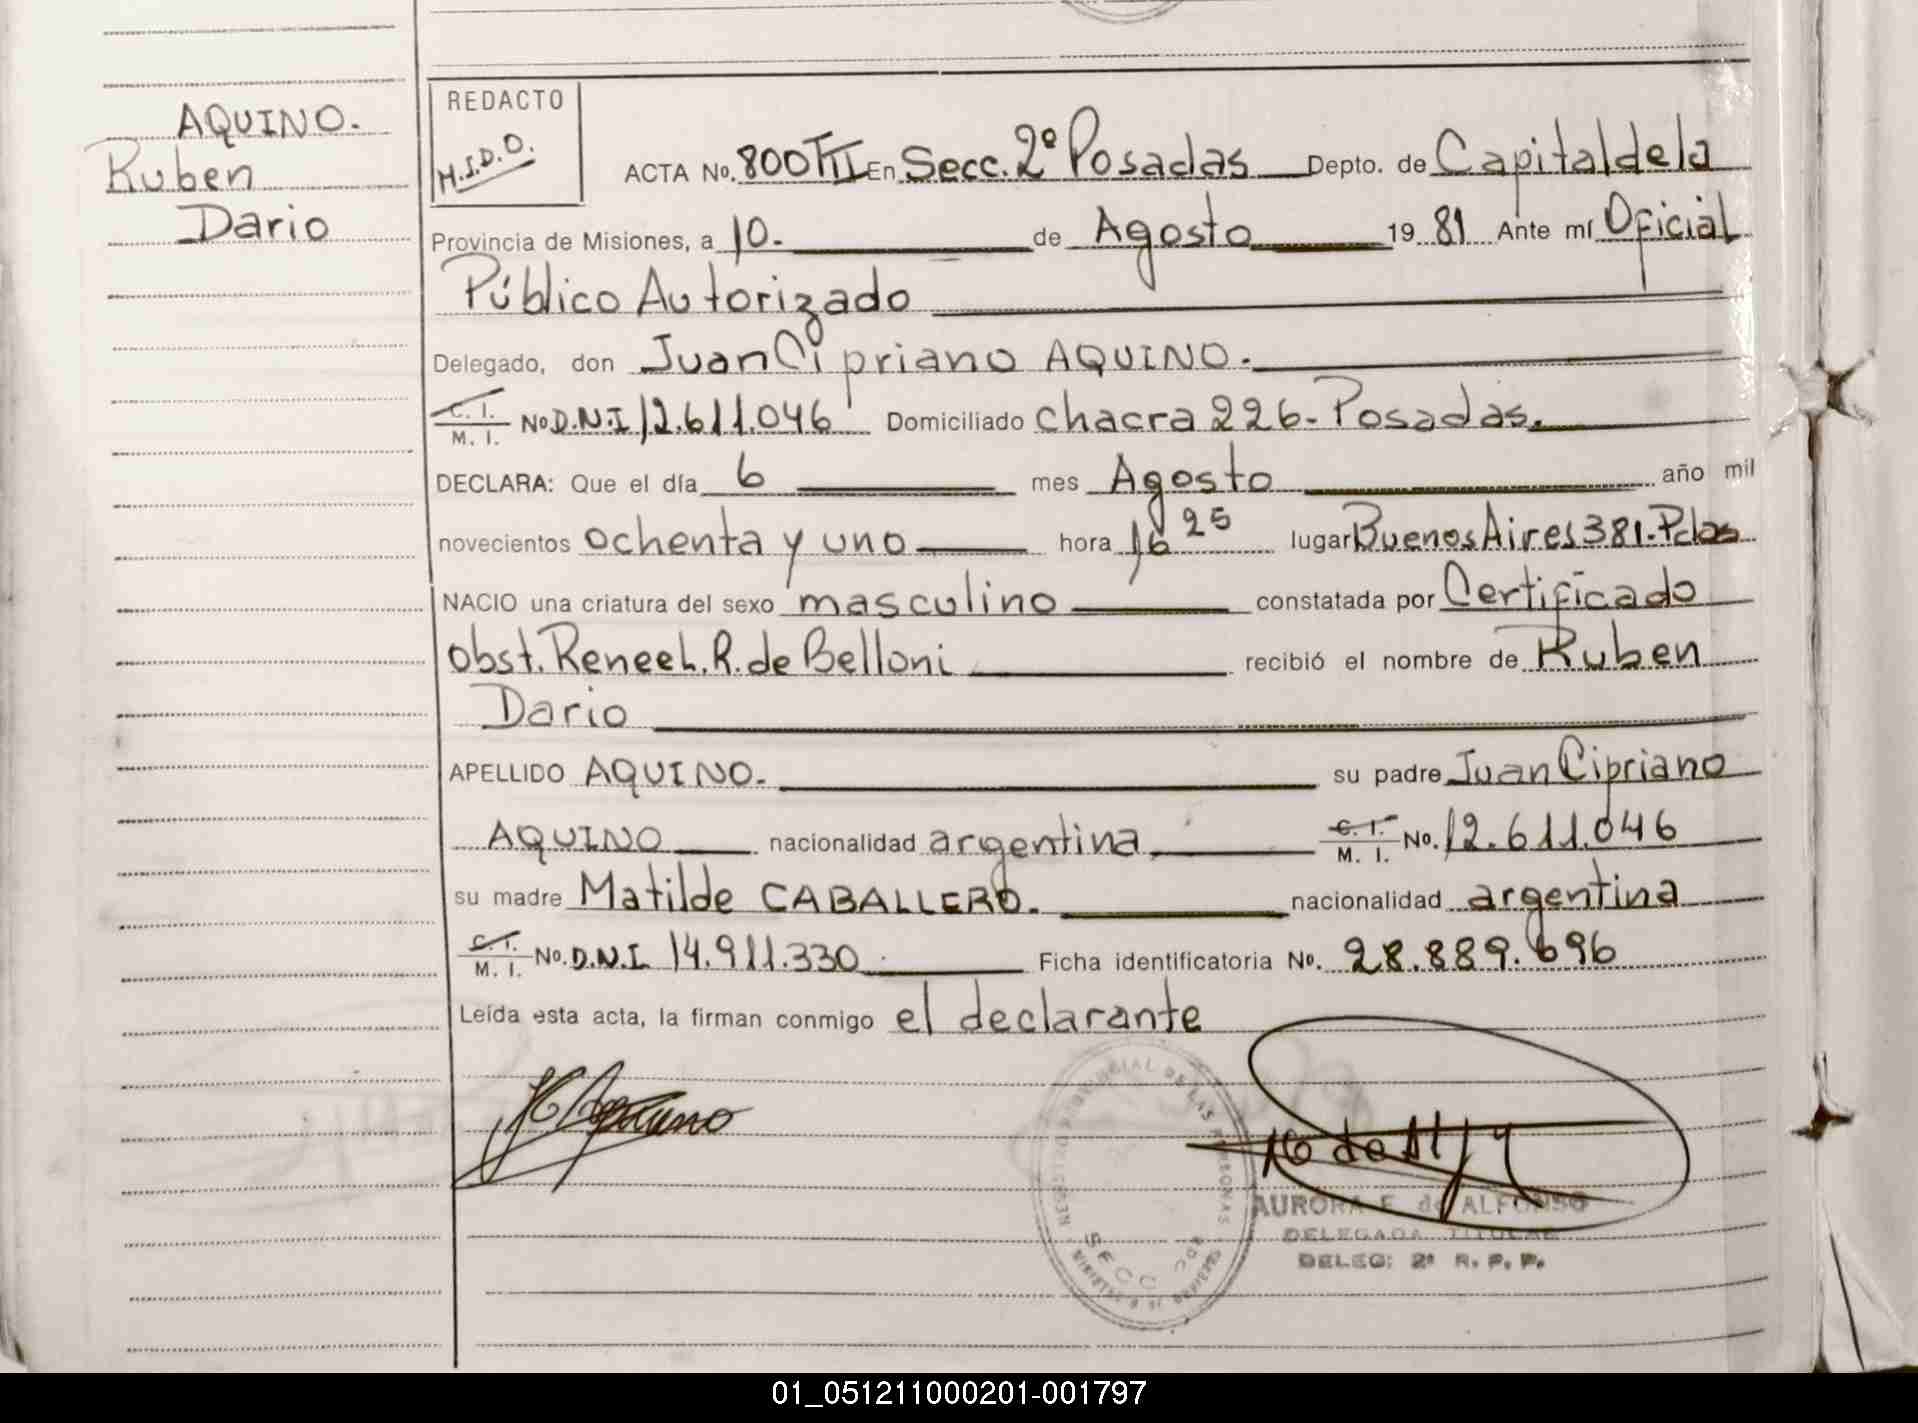 AQUINO.
Ruben
Dario
REDACTO
M.I.D.O.
ACTA No. 800 TIII En Secc. 2º Posadas Depto. de Capital de la
Provincia de Misiones, a 10. de Agosto 19 81 Ante mí Oficial
Público Autorizado
Delegado, don Juan Cipriano AQUINO.
C. I. / M. I. No D.N.I 12.611.046 Domiciliado chacra 226-Posadas.
DECLARA: Que el día 6 mes Agosto año mil
novecientos ochenta y uno hora 16 25 lugar Buenos Aires 381-Pdas
NACIO una criatura del sexo masculino constatada por Certificado
obst. Renee L. R. de Belloni recibió el nombre de Ruben
Dario
APELLIDO AQUINO. su padre Juan Cipriano
AQUINO nacionalidad argentina C. I. / M. I. No. 12.611.046
su madre Matilde CABALLERO. nacionalidad argentina
C. I. / M. I. No. D.N.I 14.911.330 Ficha identificatoria No. 28.889.696
Leída esta acta, la firman conmigo el declarante
AURORA E. de ALFONSO
DELEGADA TITULAR
DELEG: 2ª R. P. P.
SECC
01_051211000201-001797